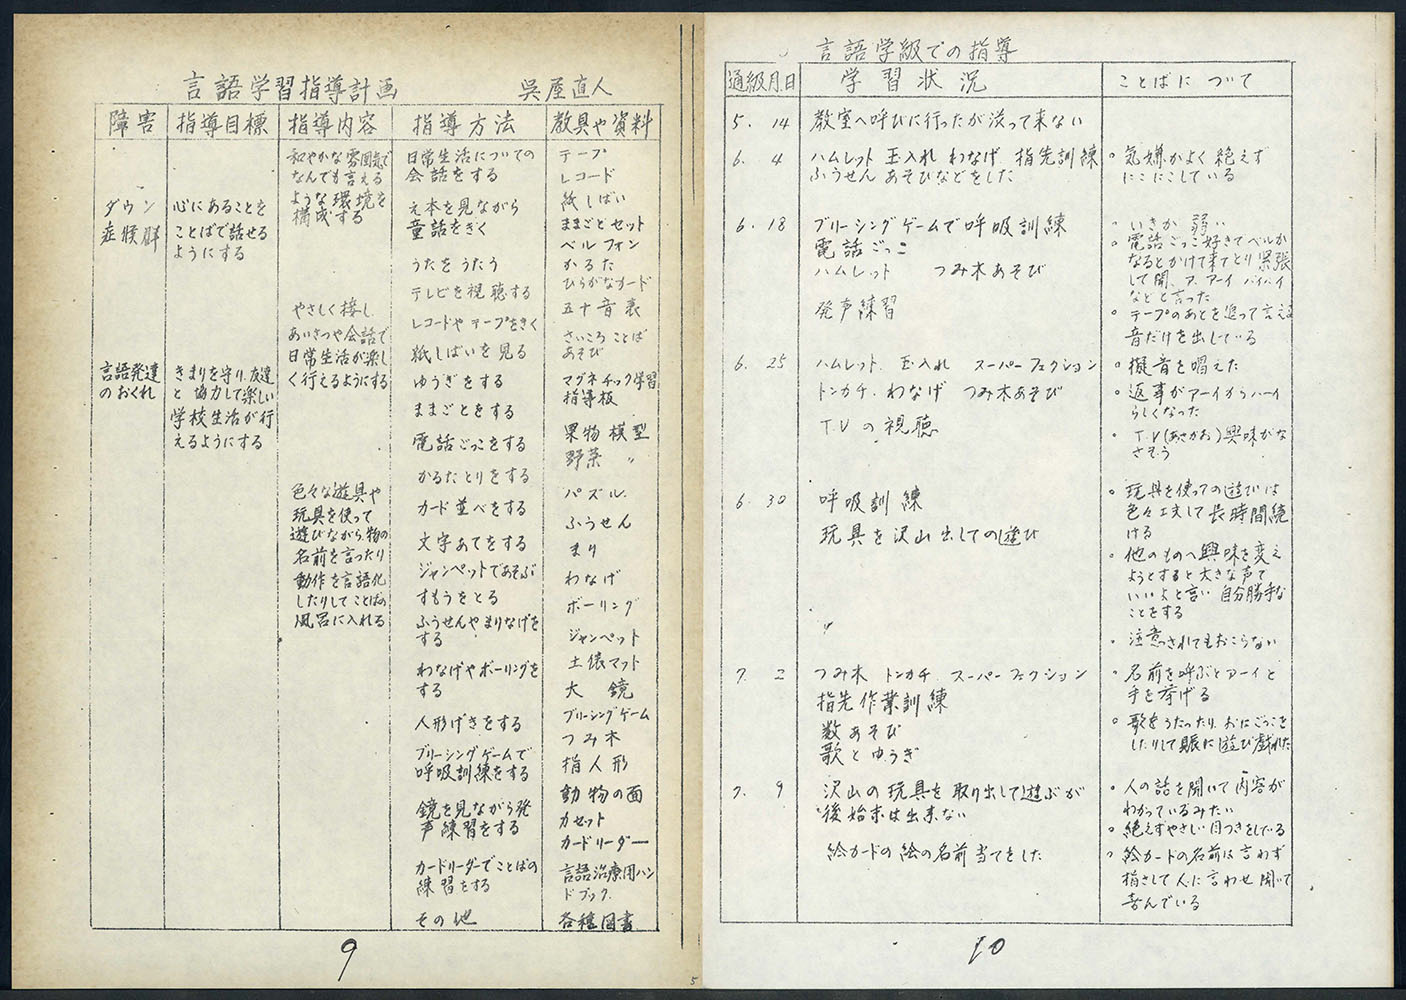 言語学習指導計画 呉屋直人
障害 指導目標 指導内容 指導方法 教具や資料
ダウン
症候群
言語発達
のおくれ
心にあることを
ことばで話せる
ようにする
きまりを守り、友達
と協力して楽しい
学校生活が行
えるようにする
和やかな雰囲気で
なんでも言える
ような環境を
構成する
やさしく接し
あいさつや会話で
日常生活が楽し
く行えるようにする
色々な遊具や
玩具を使って
遊びながら、物の
名前を言ったり
動作を言語化
したりしてことばの
風呂に入れる
日常生活についての
会話をする
え本を見ながら
童話をきく
うたをうたう
テレビを視聴する
レコードやテープをきく
紙しばいを見る
ゆうぎをする
ままごとをする
電話ごっこをする
かるたとりをする
カード並べをする
文字あてをする
ジャンペットであそぶ
すもうをとる
ふうせんやまりなげを
する
わなげやボーリングを
する
人形げきをする
ブリーシングゲームで
呼吸訓練をする
鏡を見ながら発
声練習をする
カードリーダーでことばの
練習をする
その他
テープ
レコード
紙しばい
ままごとセット
ベルフォン
かるた
ひらがなカード
五十音表
さいころことば
あそび
マグネチック学習
指導板
果物模型
野菜 〃
パズル
ふうせん
まり
わなげ
ボーリング
ジャンペット
土俵マット
大鏡
ブリーシングゲーム
つみ木
指人形
動物の面
カセット
カードリーダー
言語治療用ハン
ドブック
各種図書
9
5
言語学級での指導
通級月日 学習状況 ことばについて
5. 14 教室へ呼びに行ったが淡って来ない
6. 4 ハムレット 玉入れ わなげ 指先訓練
ふうせんあそびなどをした
。気嫌がよく絶えず
にこにこしている
6. 18 ブリーシングゲームで呼吸訓練
電話ごっこ
ハムレット つみ木あそび
発声練習
。いきが弱い
。電話ごっこ好きでベルが
なるとかけて来てとり緊張
して聞、ア、アーイ バイバイ
などと言った
。テープのあとを追って言える
音だけを出している
6. 25 ハムレット 玉入れ スーパーファクション
トンカチ、わなげ つみ木あそび
T.Vの視聴
。擬音を唱えた
。返事がアーイからハーイ
らしくなった
。T.V(あさがお)興味がな
さそう
6. 30 呼吸訓練
玩具を沢山出しての遊び
。玩具を使っての遊びは
色々工夫して長時間続
ける
。他のものへ興味を変え
ようとすると大きな声で
いいよと言い自分勝手な
ことをする
。注意されてもおこらない
7. 2 つみ木 トンカチ スーパーファクション
指先作業訓練
数あそび
歌とゆうぎ
。名前を呼ぶとアーイと
手を挙げる
。歌をうたったり、おにごっこを
したりして賑に遊び戯れた
7. 9 沢山の玩具を取り出して遊ぶが
後始末は出来ない
絵カードの絵の名前当てをした
。人の話を聞いて内容が
わかっているみたい
。絶えずやさしい目つきをしている
。絵カードの名前は言わず
指さして人に言わせ聞いて
喜んでいる
10